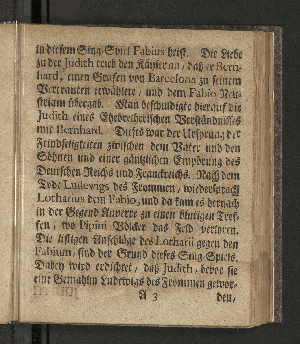 in diesem Sing-Spiel Fabius heist. Die Liebe
zu der Judith trieb den Käyser an, daß er Bern-
hard, einen Grafen von Barcelona zu seinem
Vertrauten erwählete, und dem Fabio Neu-
striam übergab. Man beschuldigte hierauf die
Judith eines Ehebrecherischen Verständnisses
mit Bernhard. Dieses war der Ursprung der
Feindseligkeiten zwischen dem Vater und den
Söhnen und einer gäntzlichen Empörung des
Deutschen Reichs und Franckreichs. Nach dem
Tode Ludewigs des Frommen, wiedersprach
Lotharius dem Fabio, und da kam es hernach
in der Gegend Auxerre zu einen blutigen Tref-
fen, wo Pipini Völcker das Feld verloren.
Die listigen Anschläge des Lotharii gegen den
Fabium, sind der Grund dieses Sing-Spiels.
Dabey wird erdichtet, daß Judith, bevor sie
eine Gemahlin Ludewigs des Frommen gewor-
A 3 den,